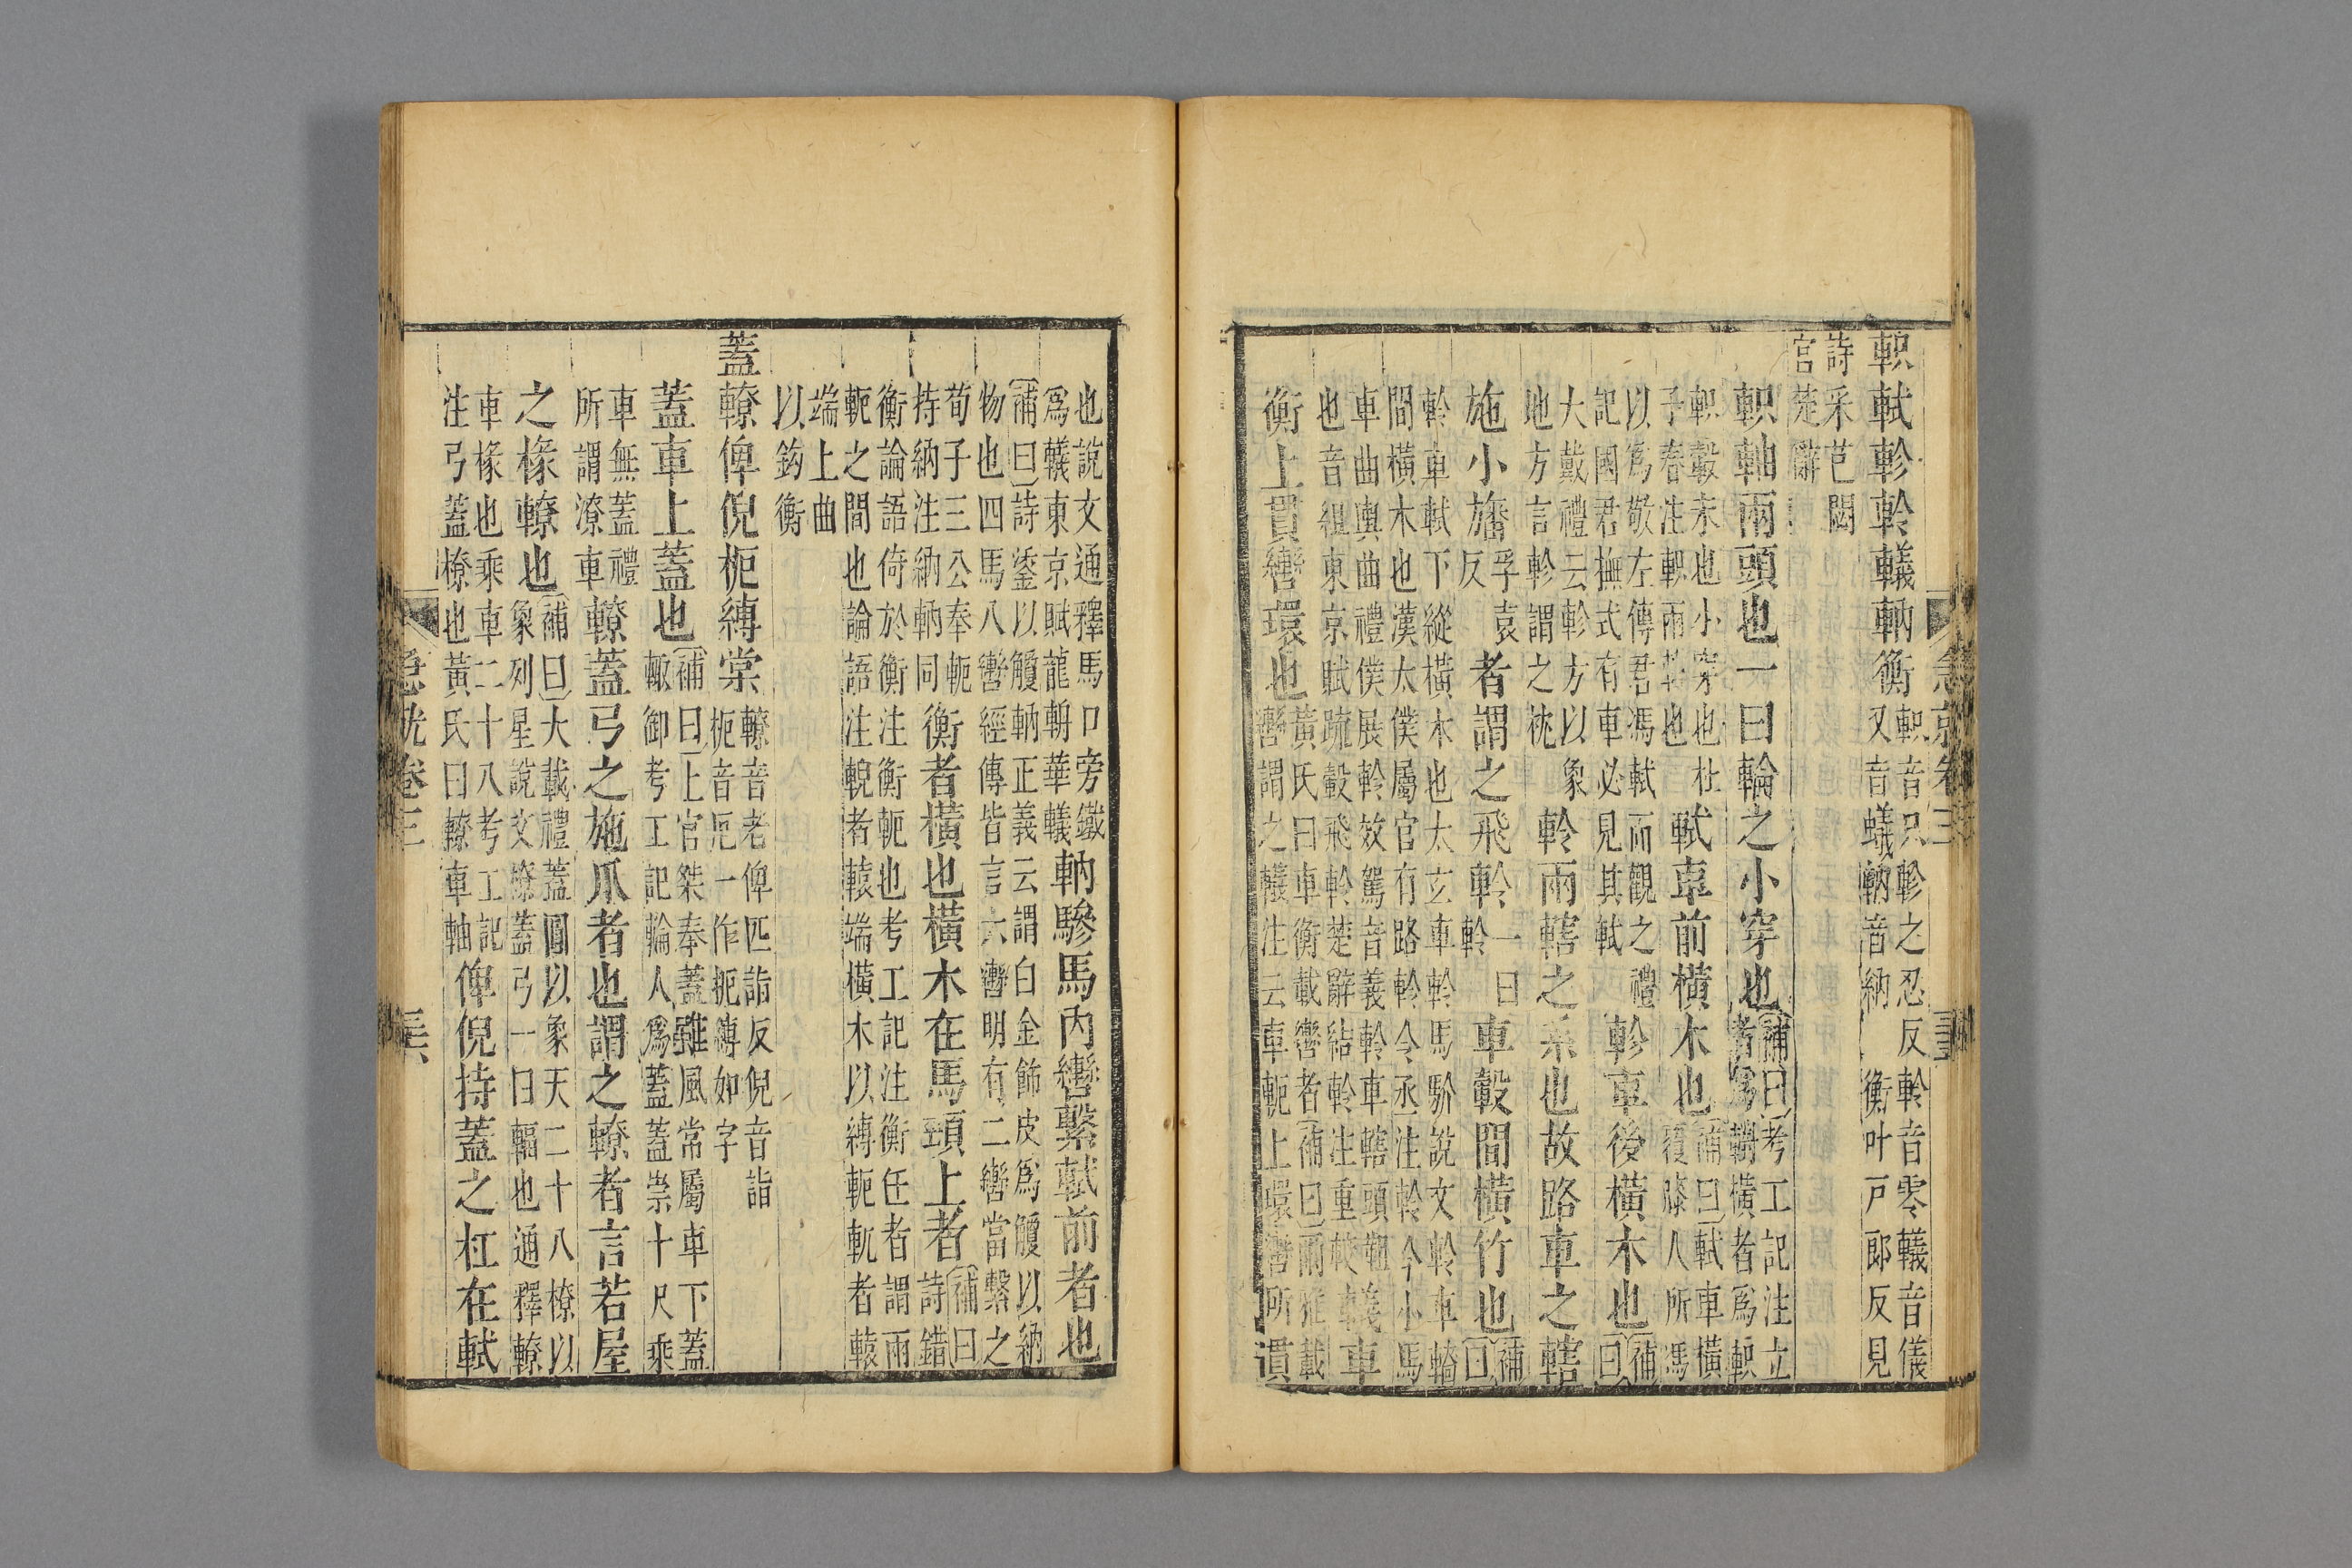 軹軾軫軨轙軜衡軹音只軫之忍反軨音零轙音儀
又音蟻軜音納 衡叶戸郎反見
詩采芑閟
宮楚辭
軹軸兩頭也一曰輪之小穿也補曰考工記注立
者爲轛橫者爲軹
軹轂末也小穿也杜
子春注軹兩轊也軾車前橫木也補曰軾車橫
覆膝人所馮
以爲敬左傳君馮軾而觀之禮
記國君撫式有車必見其軾軫車後橫木也補
曰
大戴禮云軫方以象
地方言軫謂之枕軨兩轄之系也故路車之轄
施小旛孚袁
反者謂之飛軨一曰
軨車轂間橫竹也補
曰
軨車軾下縱橫木也太玄車軨馬駖說文軨車轖
間橫木也漢太僕屬官有路軨令丞注軨今小馬
車曲輿曲禮僕展軨效駕音義軨車轄頭靼
也音組東京賦疏轂飛軨楚辭結軨注重較轙車
衡上貫轡環也黃氏曰車衡載轡者補曰爾雅載
轡謂之轙注云車軛上環轡所貫
也說文通釋馬口旁鐵
爲轙東京賦龍輈華轙軜驂馬內轡繫軾前者也
補曰詩鋈以觼軜正義云謂白金飾皮爲觼以納
物也四馬八轡經傳皆言六轡明有二轡當繫之
荀子三公奉軛
持納注納軜同衡者橫也橫木在馬頸上者補曰
詩錯
衡論語倚於衡注衡軛也考工記注衡任者謂兩
軛之間也論語注輗者轅端橫木以縛軛軏者轅
端上曲
以鉤衡
蓋轑俾倪枙縛棠轑音老俾匹詣反倪音詣
枙音厄一作扼縛如字
蓋車上蓋也補曰上官桀奉蓋雖風常屬車下蓋
輒御考工記輪人爲蓋蓋崇十尺乘
車無蓋禮
所謂潦車轑蓋弓之施爪者也謂之轑者言若屋
之椽轑也補曰大載禮蓋圓以象天二十八橑以
象列星說文橑蓋弓一曰輻也通釋轑
車椽也乘車二十八考工記
注弓蓋橑也黃氏曰轑車軸俾倪持蓋之杠在軾
急就卷三